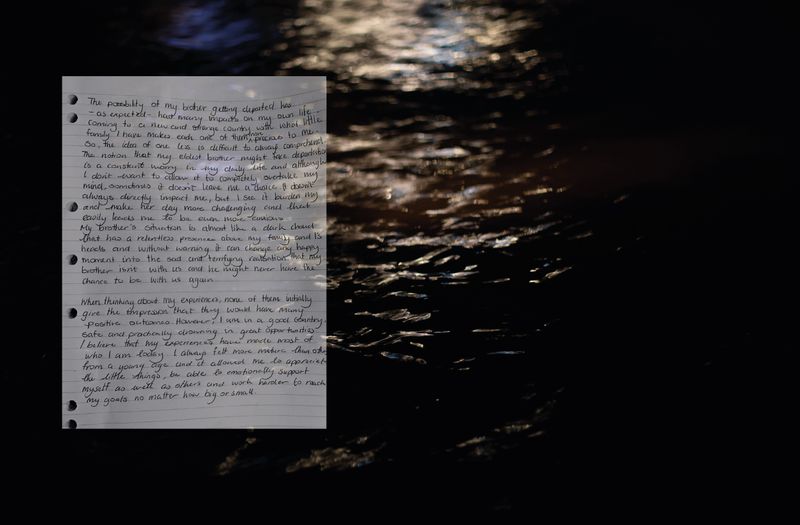 The possibility of my brother getting deported has
- as expected - had many impacts on my own life.
Coming to a new and strange country with what little
family I have makes each one of them precise to me.
So, the idea of one less is difficult to always comprehend.
The notion that my eldest brother might face deportation
is a constant worry in my daily life and although
I don't want to allow it to completely overtake my
mind, sometimes it doesn't leave me a choice. It doesn't
always directly impact me, but I see it burden my
and make her day more challenging and that
easily leads me to be even more anxious.
My brother's situation is almost like a dark cloud
that has a relentless presence above my family and I's
heads and without warning it can change any happy
moment into the sad and terrifying realisation that my
brother isn't with us and he might never have the
chance to be with us again.
When thinking about my experiences, none of them initially
give the impression that they would have many
positive outcomes. However, I am in a good country,
safe and practically drowning in great opportunities.
I believe that my experiences have made most of
who I am today. I always felt more mature than other
from a young age and it allowed me to appreciate
the little things, be able to emotionally support
myself as well as others and work harder to reach
my goals no matter how big or small.